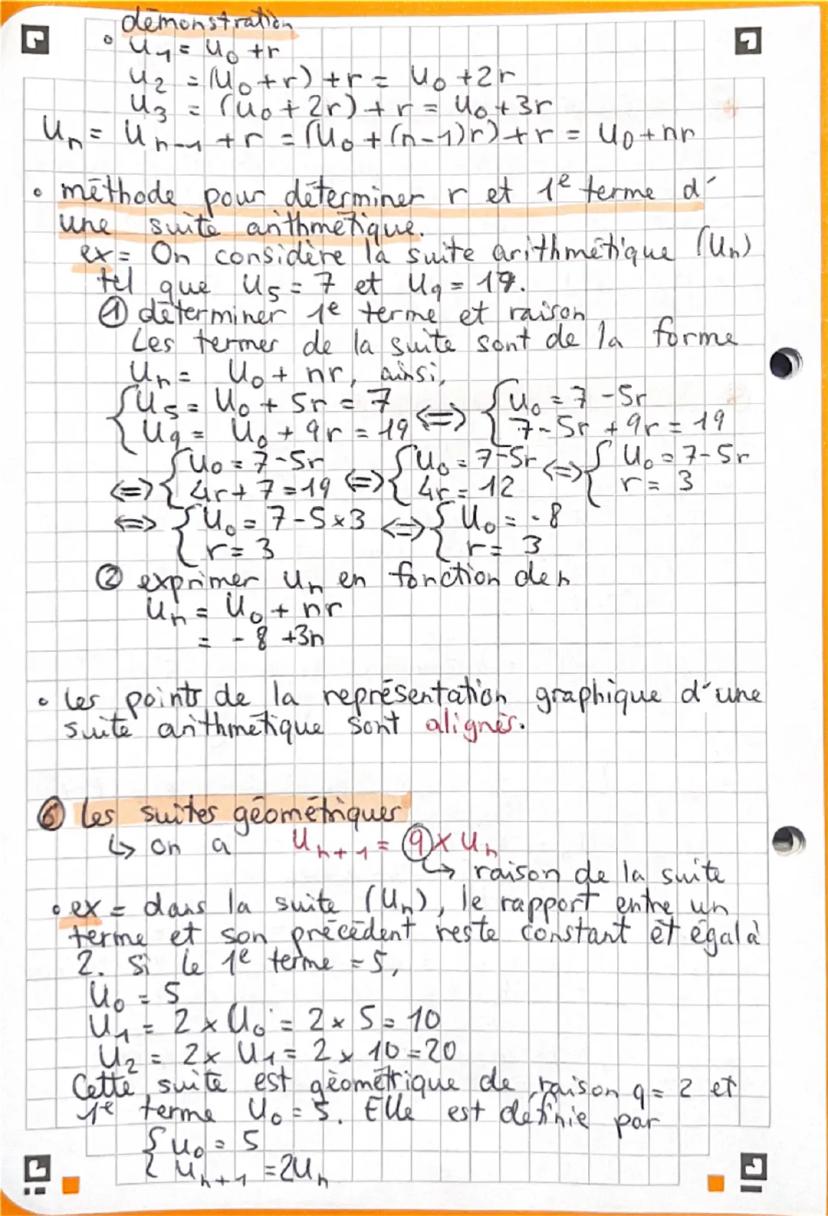 démonstration
• U₁ = U₀ + r
U₂ = (U₀ + r) + r = U₀ + 2r
U₃ = (U₀ + 2r) + r = U₀ + 3r
Uₙ = Uₙ₋₁ + r = (U₀ + (n-1)r) + r = U₀ + nr
• méthode pour déterminer r et 1e terme d'
une suite arithmétique.
ex = On considère la suite arithmétique (Uₙ)
tel que U₅ = 7 et U₉ = 19.
① déterminer 1e terme et raison
Les termes de la suite sont de la forme
Uₙ = U₀ + nr, ainsi,
{ U₅ = U₀ + 5r = 7 ⟺ { U₀ = 7 - 5r
{ U₉ = U₀ + 9r = 19 { 7 - 5r + 9r = 19
{ U₀ = 7 - 5r { U₀ = 7 - 5r ⟺ { U₀ = 7 - 5r
⟺ { 4r + 7 = 19 ⟺ { 4r = 12 { r = 3
⟺ { U₀ = 7 - 5 × 3 ⟺ { U₀ = -8
{ r = 3 { r = 3
② exprimer Uₙ en fonction de n
Uₙ = U₀ + nr
= -8 + 3n
• les points de la représentation graphique d'une
suite arithmétique sont alignés.
⑥ les suites géométriques
↳ on a Uₙ₊₁ = q × Uₙ
↳ raison de la suite
• ex = dans la suite (Uₙ), le rapport entre un
terme et son précédent reste constant et égal à
2. Si le 1e terme = 5,
U₀ = 5
U₁ = 2 × U₀ = 2 × 5 = 10
U₂ = 2 × U₁ = 2 × 10 = 20
Cette suite est géométrique de raison q = 2 et
1e terme U₀ = 5. Elle est définie par
{ U₀ = 5
{ Uₙ₊₁ = 2Uₙ